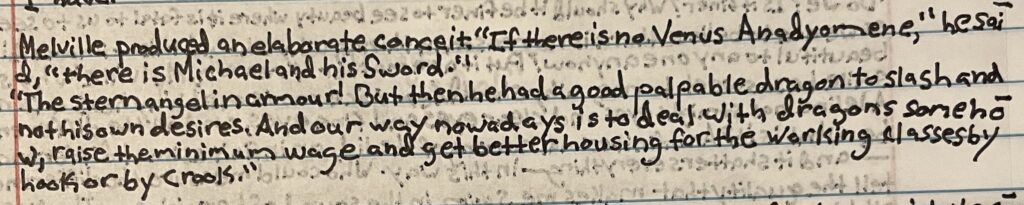 Melville produced an elaborate conceit. "If there is no Venus Anadyomene," he sai
d, "there is Michael and his Sword."
"The stern angel in armour! But then he had a good palpable dragon to slash and
not his own desires. And our way nowadays is to deal with dragons someho
w, raise the minimum wage and get better housing for the working classes by
hook or by crook."